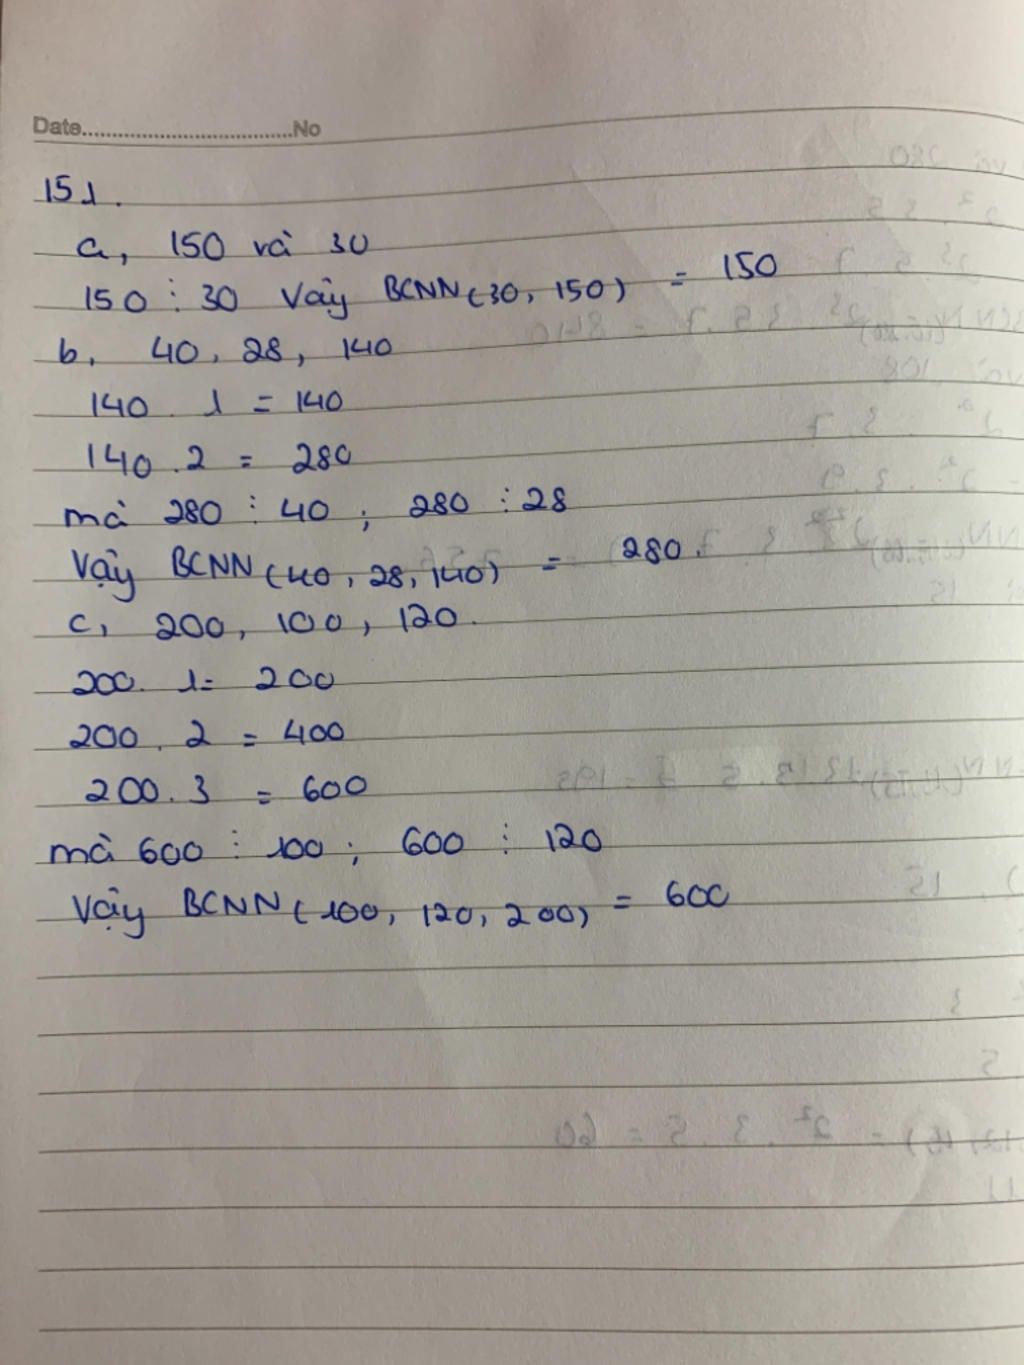 Date..............................No
151.
a, 150 và 30
150 ⋮ 30 Vậy BCNN(30, 150) = 150
b, 40, 28, 140
140 . 1 = 140
140 . 2 = 280
mà 280 ⋮ 40 ; 280 ⋮ 28
Vậy BCNN(40, 28, 140) = 280.
c, 200, 100, 120.
200. 1 = 200
200 . 2 = 400
200 . 3 = 600
mà 600 ⋮ 100 ; 600 ⋮ 120
Vậy BCNN(100, 120, 200) = 600